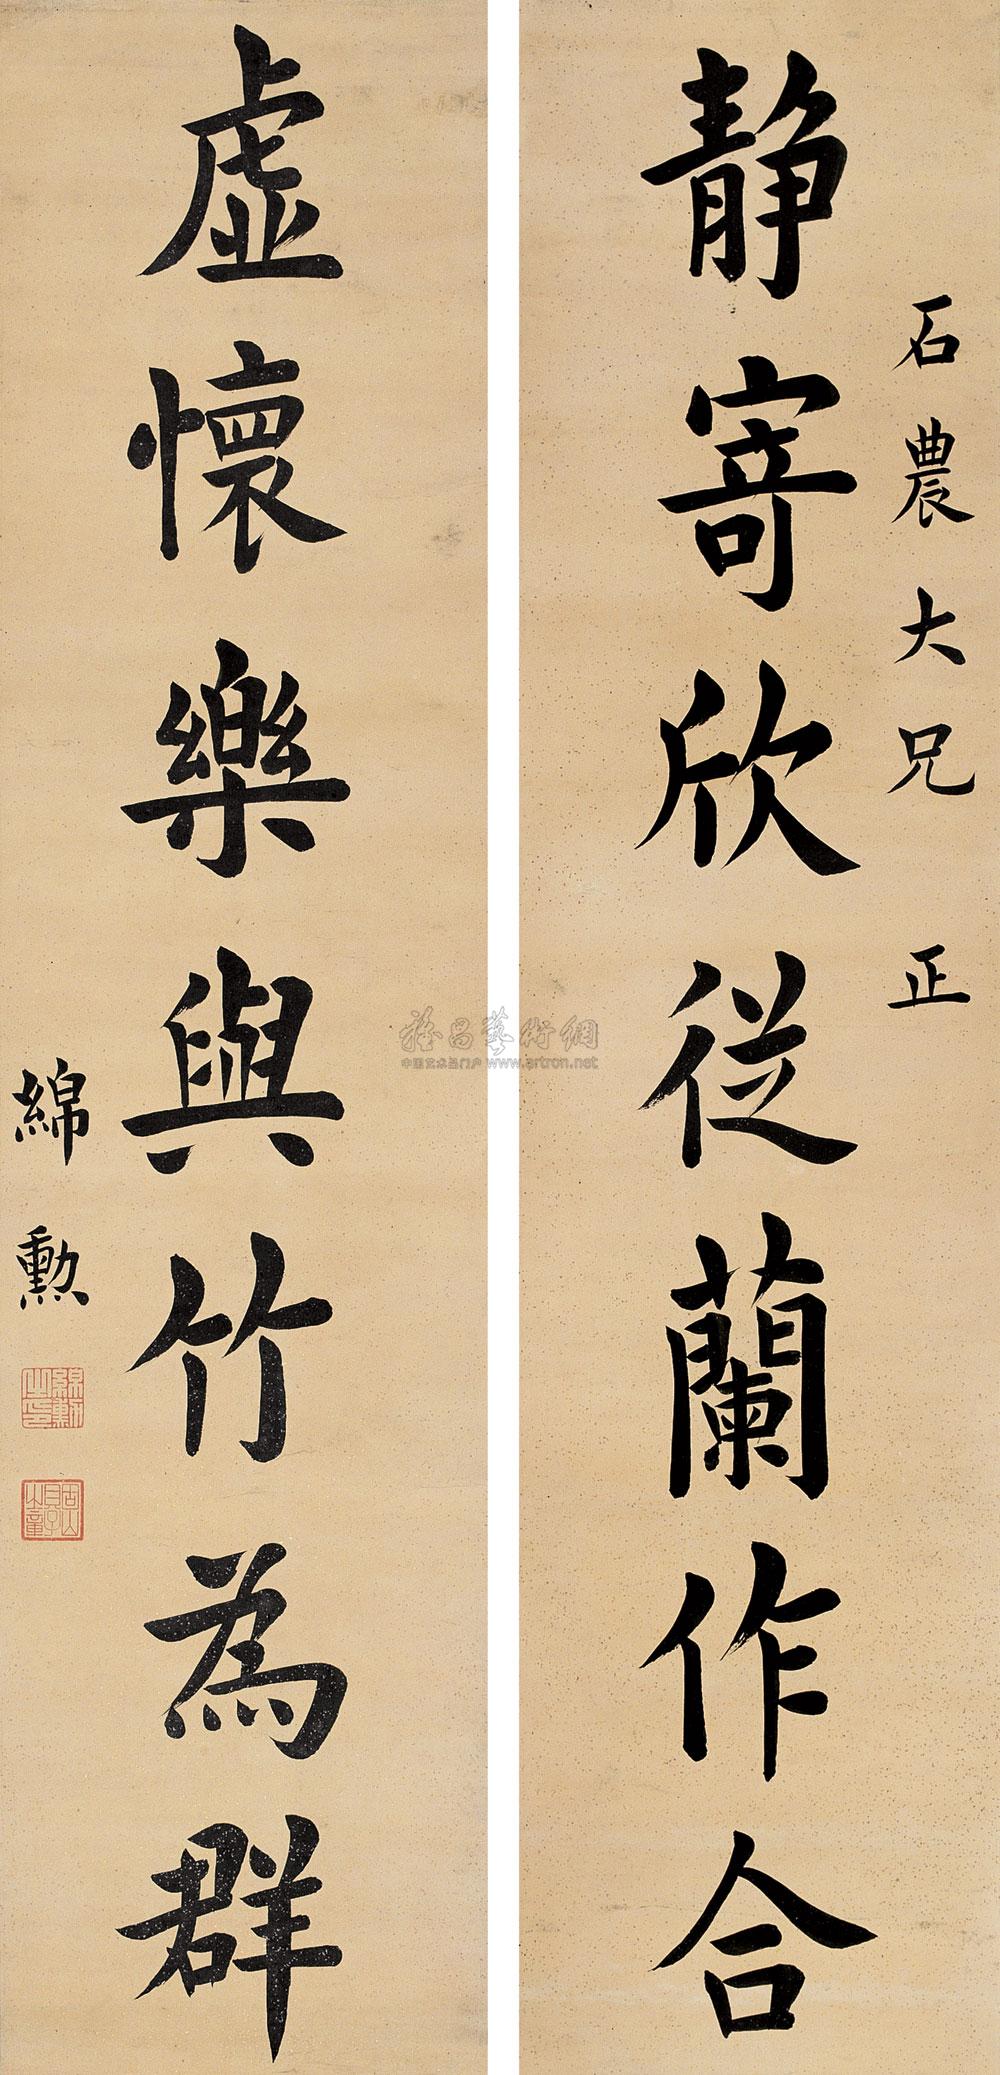 静寄欣従蘭作合
石農大兄正
虛懷樂與竹為群
綿勲
綿勲之印
雅昌藝術網
中国艺术品门户 www.artron.net